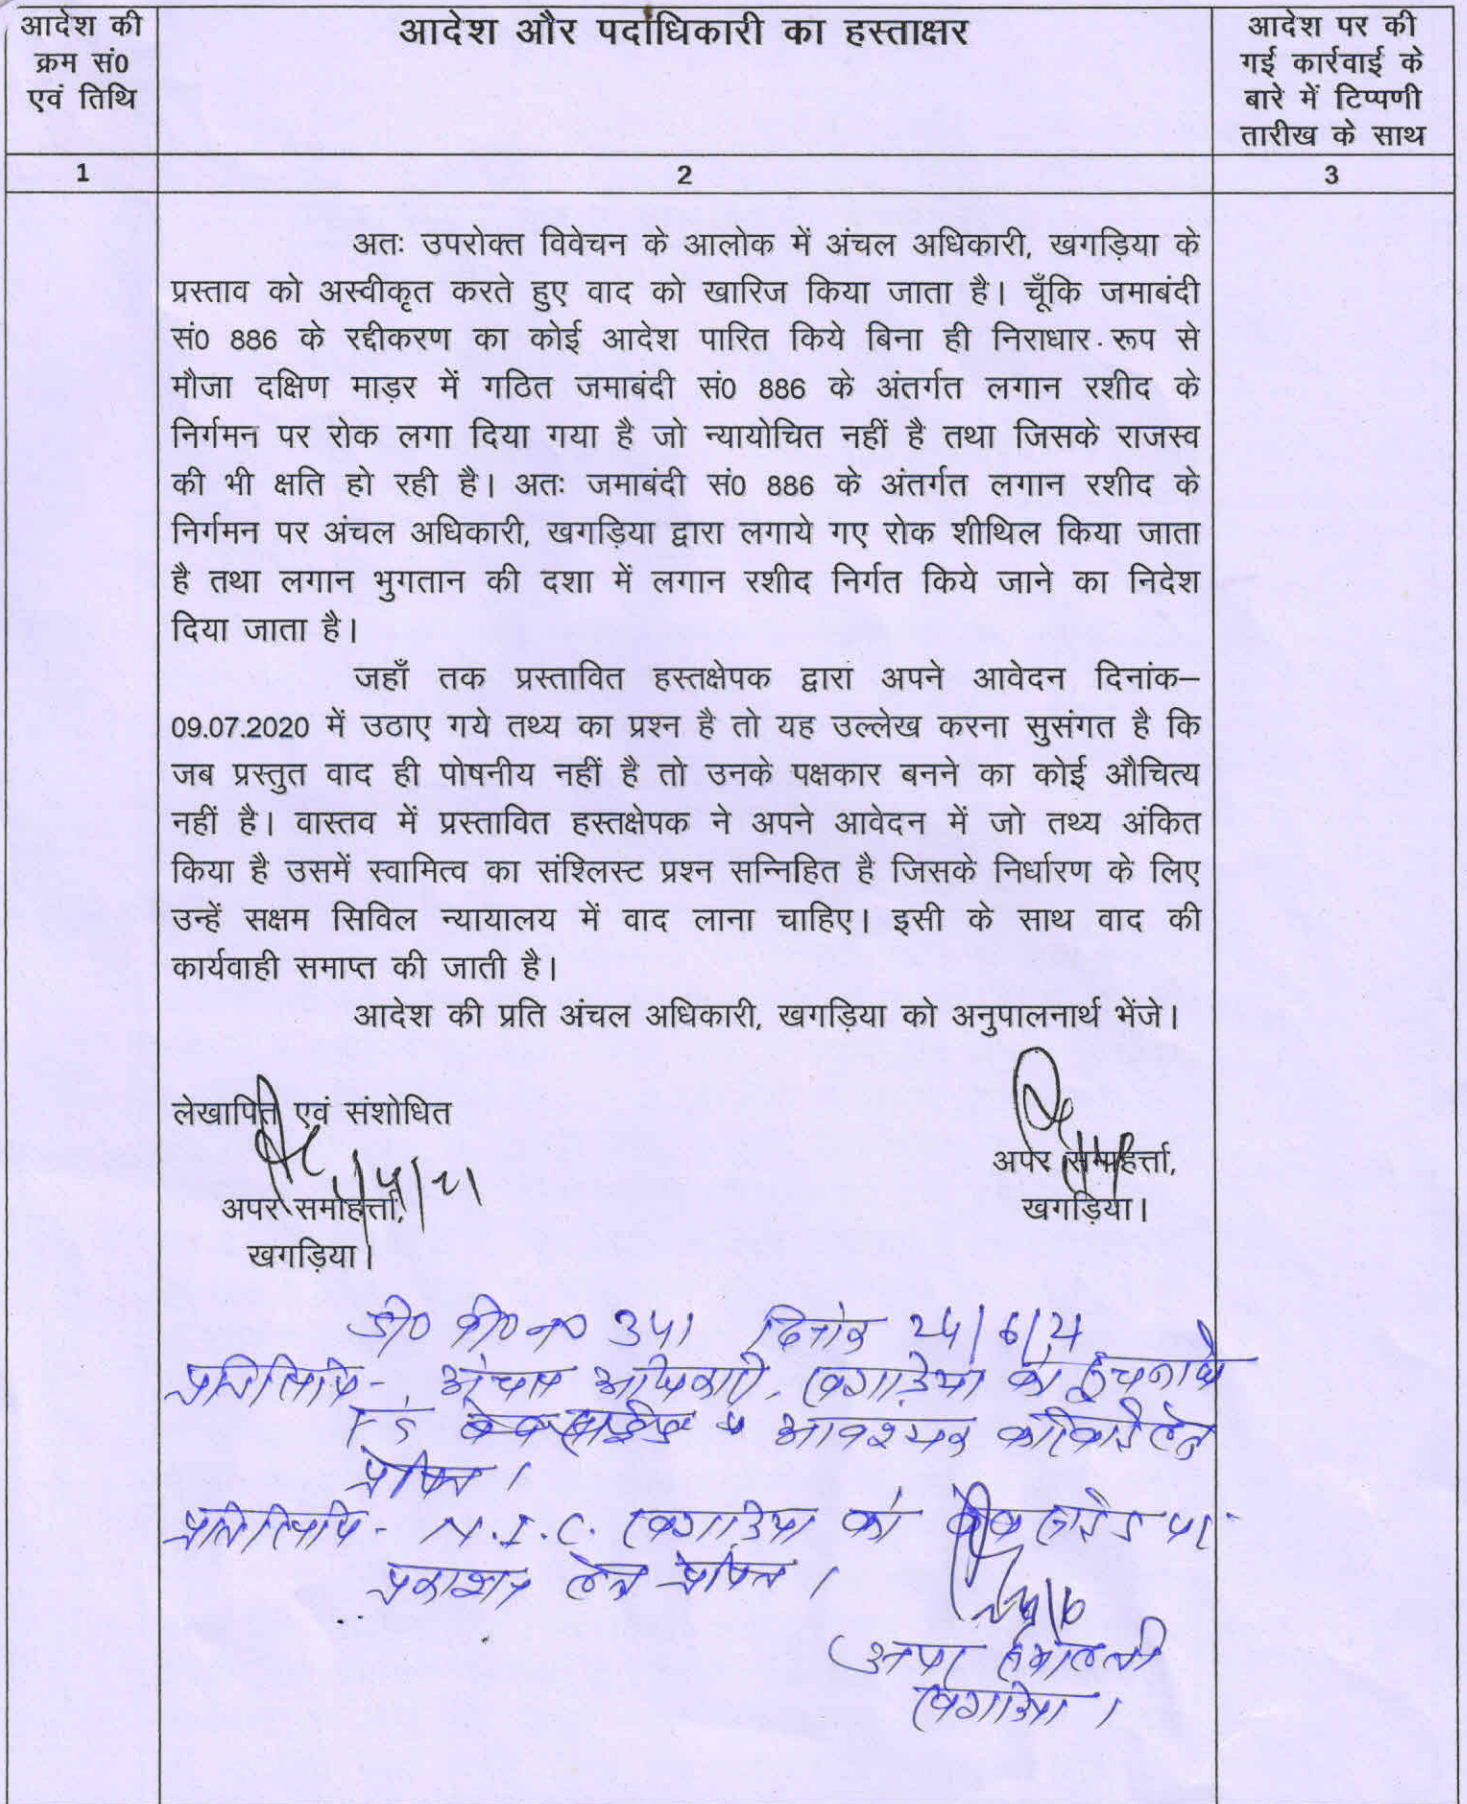 आदेश की
क्रम सं0
एवं तिथि
आदेश और पदाधिकारी का हस्ताक्षर
आदेश पर की
गई कार्रवाई के
बारे में टिप्पणी
तारीख के साथ
1
2
3
अतः उपरोक्त विवेचन के आलोक में अंचल अधिकारी, खगड़िया के
प्रस्ताव को अस्वीकृत करते हुए वाद को खारिज किया जाता है। चूँकि जमाबंदी
सं0 886 के रद्दीकरण का कोई आदेश पारित किये बिना ही निराधार रूप से
मौजा दक्षिण माड़र में गठित जमाबंदी सं0 886 के अंतर्गत लगान रशीद के
निर्गमन पर रोक लगा दिया गया है जो न्यायोचित नहीं है तथा जिसके राजस्व
की भी क्षति हो रही है। अतः जमाबंदी सं0 886 के अंतर्गत लगान रशीद के
निर्गमन पर अंचल अधिकारी, खगड़िया द्वारा लगाये गए रोक शीथिल किया जाता
है तथा लगान भुगतान की दशा में लगान रशीद निर्गत किये जाने का निदेश
दिया जाता है।
जहाँ तक प्रस्तावित हस्तक्षेपक द्वारा अपने आवेदन दिनांक–
09.07.2020 में उठाए गये तथ्य का प्रश्न है तो यह उल्लेख करना सुसंगत है कि
जब प्रस्तुत वाद ही पोषनीय नहीं है तो उनके पक्षकार बनने का कोई औचित्य
नहीं है। वास्तव में प्रस्तावित हस्तक्षेपक ने अपने आवेदन में जो तथ्य अंकित
किया है उसमें स्वामित्व का संश्लिस्ट प्रश्न सन्निहित है जिसके निर्धारण के लिए
उन्हें सक्षम सिविल न्यायालय में वाद लाना चाहिए। इसी के साथ वाद की
कार्यवाही समाप्त की जाती है।
आदेश की प्रति अंचल अधिकारी, खगड़िया को अनुपालनार्थ भेंजे।
लेखापित एवं संशोधित
अपर समाहर्त्ता,
खगड़िया।
अपर समाहर्त्ता,
खगड़िया।
दिनांक
प्रतिलिपि- अंचल अधिकारी, खगड़िया को सूचनार्थ
आवश्यक
प्रेषित।
प्रतिलिपि- N.I.C. खगड़िया को पर
प्रकाशन हेतु प्रेषित।
अपर समाहर्त्ता
खगड़िया।